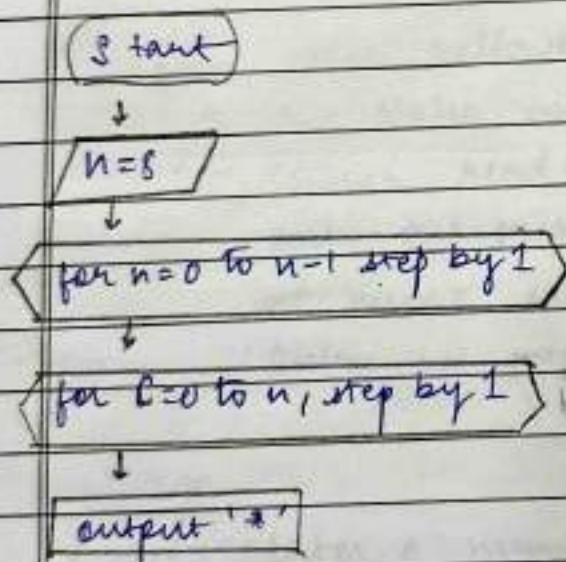 Start
n=5
for n=0 to n-1 step by 1
for C=0 to n, step by 1
output '*'